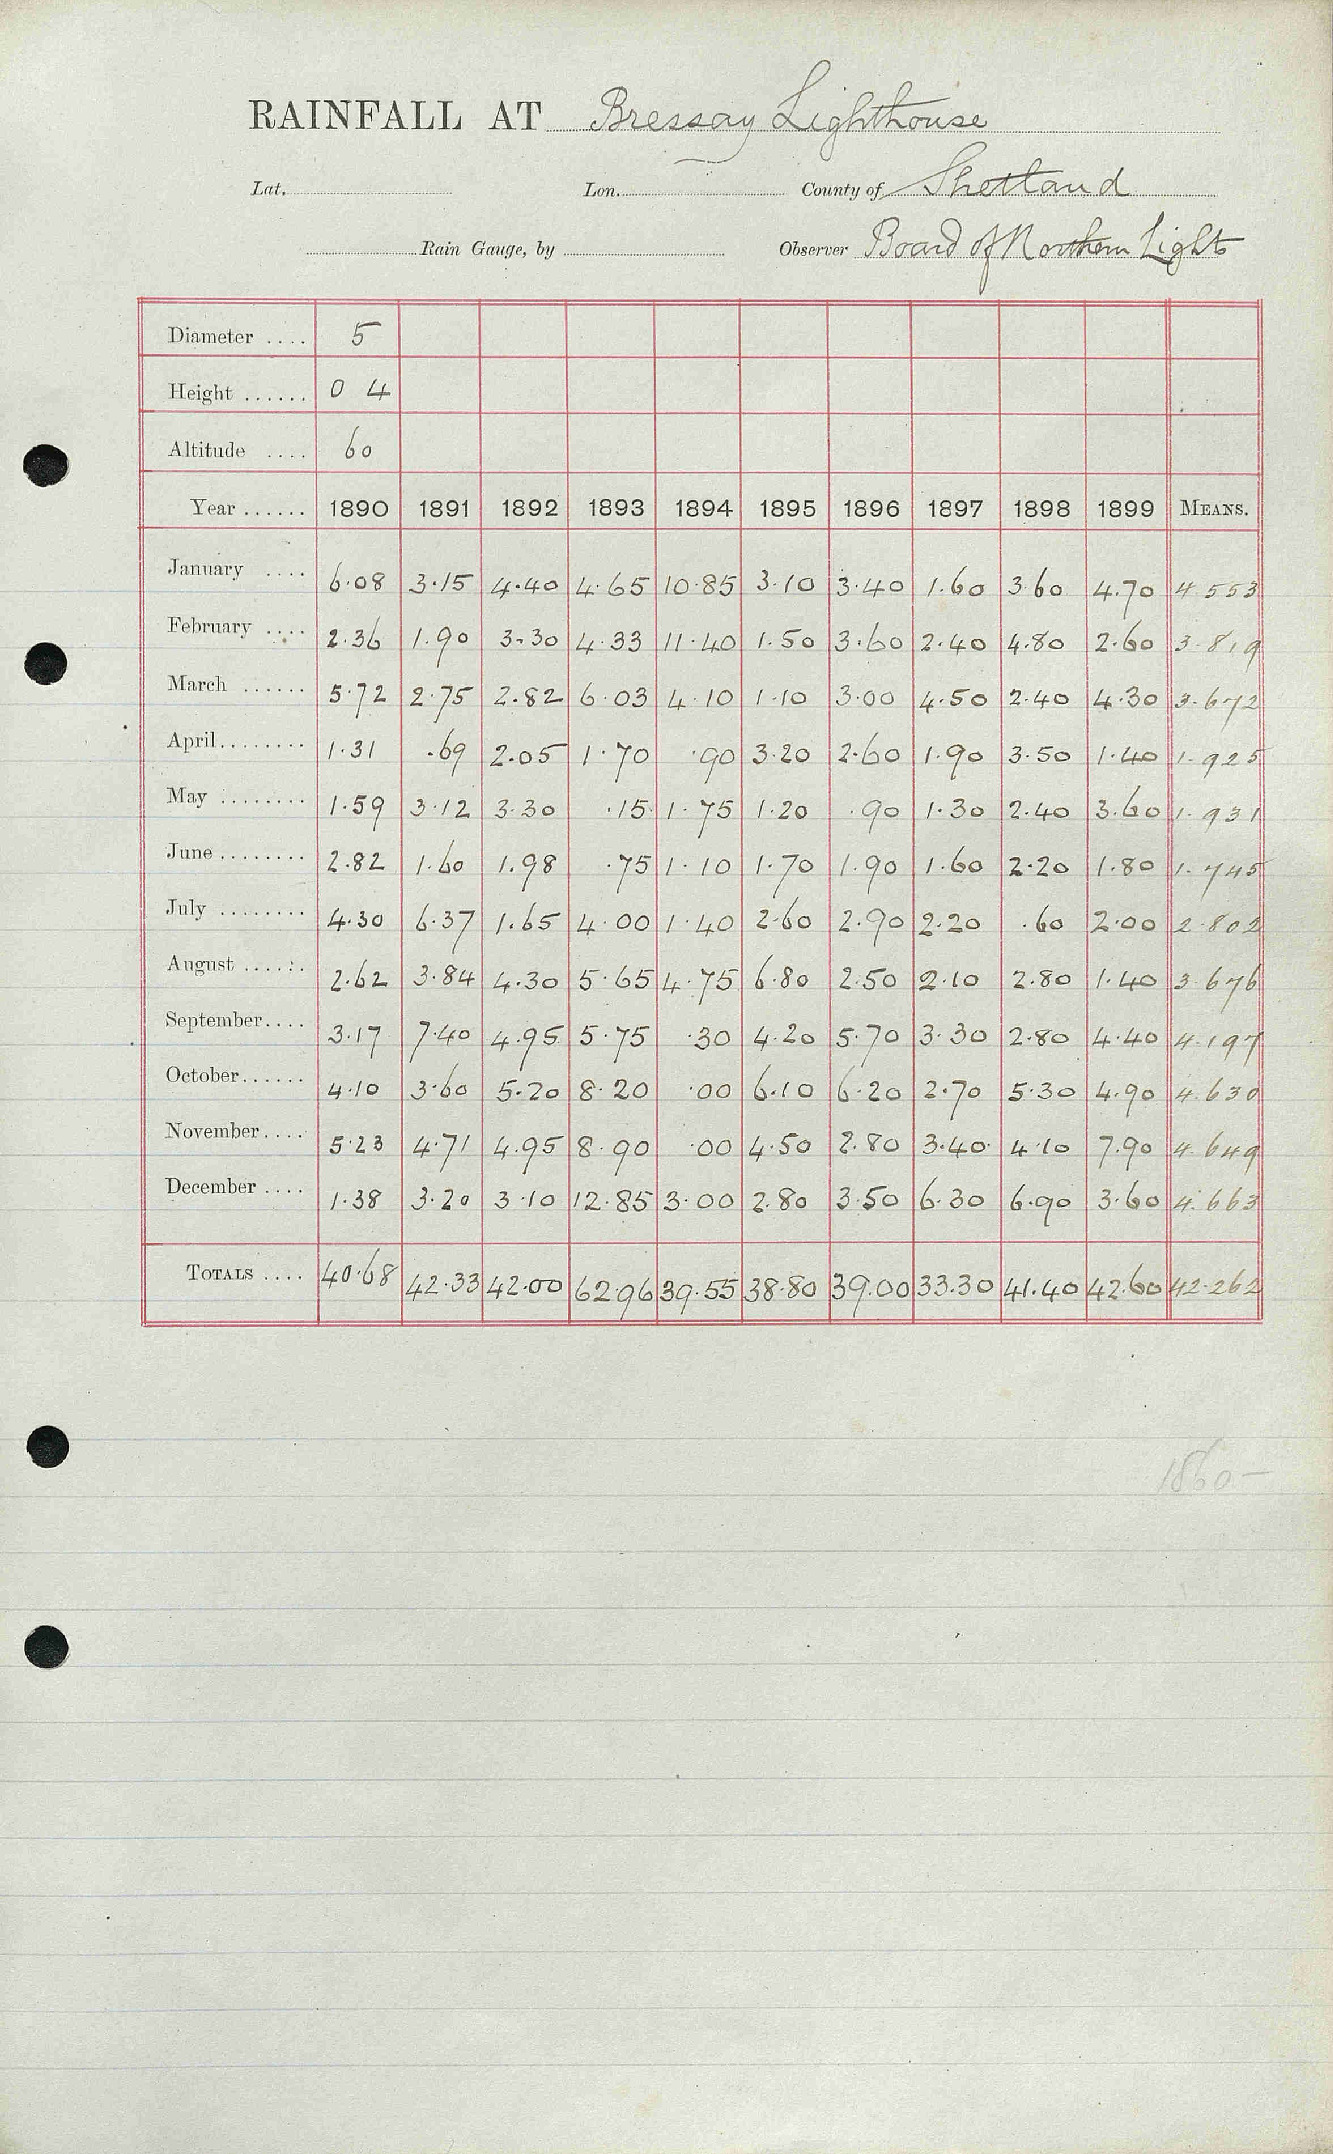 RAINFALL AT Bressay Lighthouse
Lat. Lon. County of Shetland
Rain Gauge, by Observer Board of Northern Lights
Diameter .... 5
Height ...... 0 4
Altitude .... 60
Year ...... 1890 1891 1892 1893 1894 1895 1896 1897 1898 1899 MEANS.
January .... 6.08 3.15 4.40 4.65 10.85 3.10 3.40 1.60 3.60 4.70 4.553
February .... 2.36 1.90 3.30 4.33 11.40 1.50 3.60 2.40 4.80 2.60 3.819
March ...... 5.72 2.75 2.82 6.03 4.10 1.10 3.00 4.50 2.40 4.30 3.672
April........ 1.31 .69 2.05 1.70 .90 3.20 2.60 1.90 3.50 1.40 1.925
May ........ 1.59 3.12 3.30 .15 1.75 1.20 .90 1.30 2.40 3.60 1.931
June ........ 2.82 1.60 1.98 .75 1.10 1.70 1.90 1.60 2.20 1.80 1.745
July ........ 4.30 6.37 1.65 4.00 1.40 2.60 2.90 2.20 .60 2.00 2.802
August ...... 2.62 3.84 4.30 5.65 4.75 6.80 2.50 2.10 2.80 1.40 3.676
September.... 3.17 7.40 4.95 5.75 .30 4.20 5.70 3.30 2.80 4.40 4.197
October...... 4.10 3.60 5.20 8.20 .00 6.10 6.20 2.70 5.30 4.90 4.630
November.... 5.23 4.71 4.95 8.90 .00 4.50 2.80 3.40 4.10 7.90 4.649
December .... 1.38 3.20 3.10 12.85 3.00 2.80 3.50 6.30 6.90 3.60 4.663
TOTALS .... 40.68 42.33 42.00 62.96 39.55 38.80 39.00 33.30 41.40 42.60 42.262
1860—